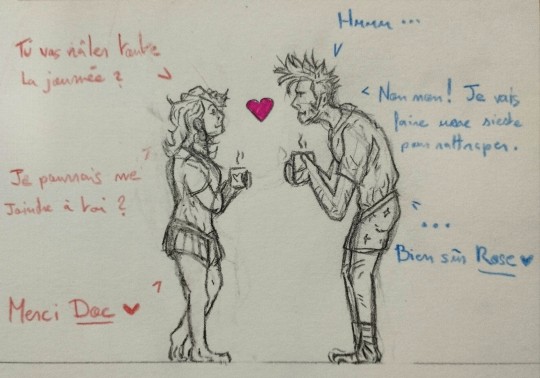 Tu vas râler toute
la journée ?
Hmmm ...
Non non ! Je vais
faire une sieste
pour rattraper.
Je pourrais me
joindre à toi ?
...
Bien sûr Rose ♥
Merci Doc ♥